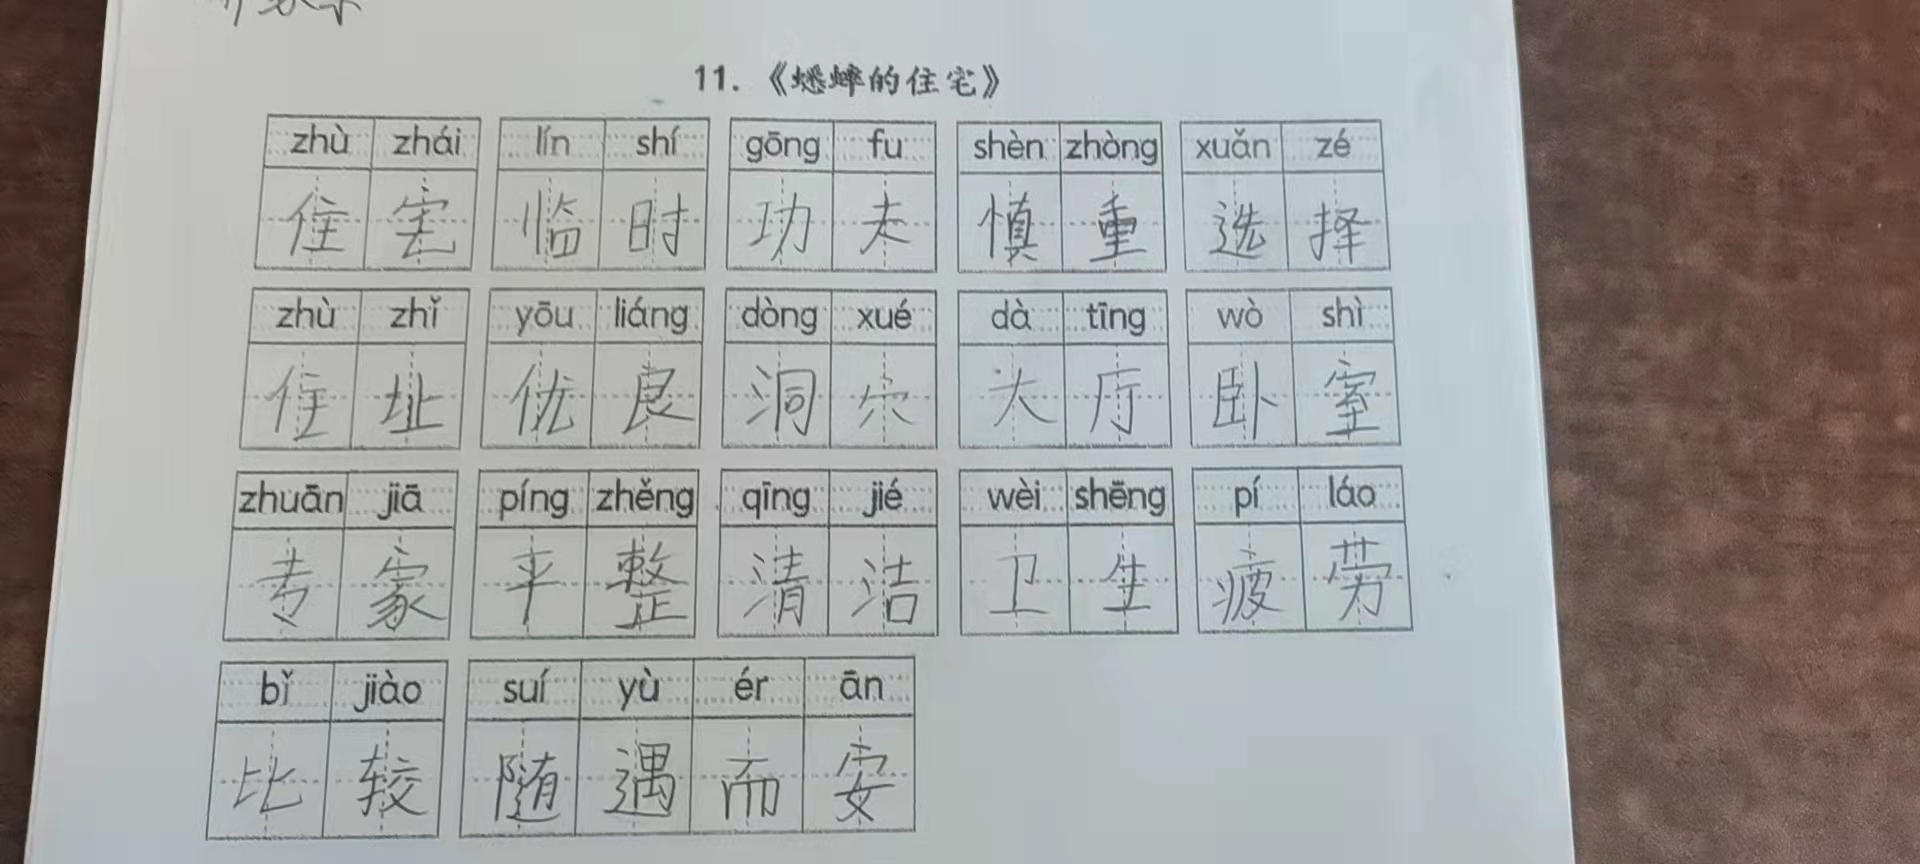 11.《蟋蟀的住宅》
zhù zhái lín shí gōng fu shèn zhòng xuǎn zé
住宅 临时 功夫 慎重 选择
zhù zhǐ yōu liáng dòng xué dà tīng wò shì
住址 优良 洞穴 大厅 卧室
zhuān jiā píng zhěng qīng jié wèi shēng pí láo
专家 平整 清洁 卫生 疲劳
bǐ jiào suí yù ér ān
比较 随遇而安